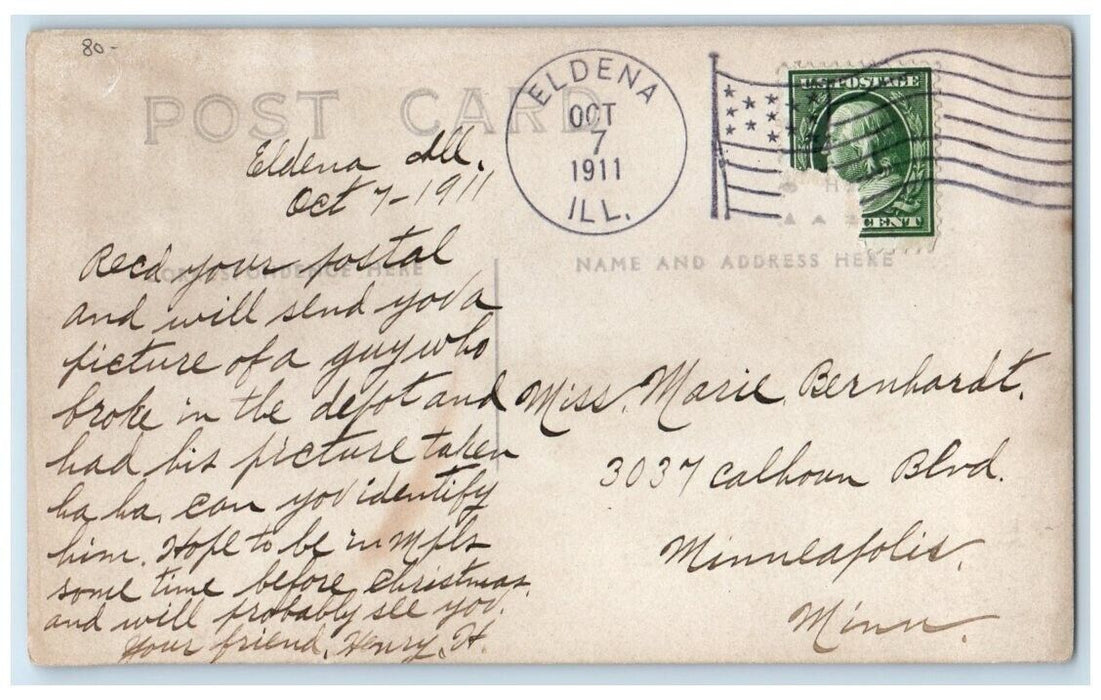 80-
POST CARD
ELDENA
OCT
7
1911
ILL.
U.S. POSTAGE
CENT
Eldena Ill.
Oct 7-1911
CORRESPONDENCE HERE
NAME AND ADDRESS HERE
Rec'd your postal
and will send you a
picture of a guy who
broke in the depot and
had his picture taken
ha ha. can you identify
him. Hope to be in Mpls
some time before christmas.
and will probably see you.
Your friend, Henry. H.
Miss. Marie Bernhardt.
3037 Calhoun Blvd.
Minneapolis.
Minn.